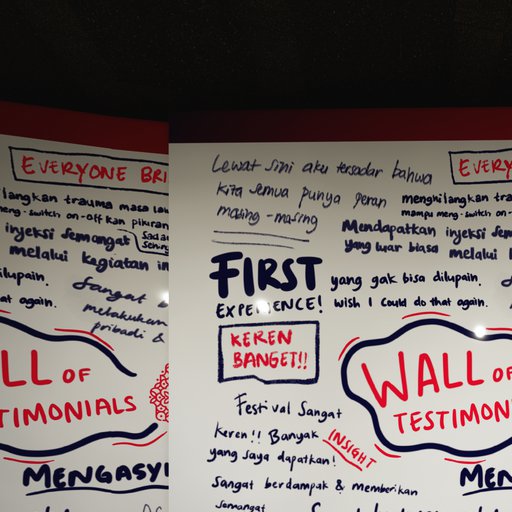 EVERYONE BRI
langkan trauma masa la
meng-switch on-off kan pikiran
injeksi semangat
melalui kegiatan in
dilupain.
Sangat b
that again.
melakukan
pribadi &
LL OF
TIMONIALS
MENGASYI
Lewat sini aku tersadar bahwa
kita semua punya peran
masing-masing
EVERY
menghilangkan tra
mampu meng-switch on-
Mendapatkan injeksi sem
yang luar biasa melalui k
FIRST
EXPERIENCE!
yang gak bisa dilupain.
wish I could do that again.
KEREN
BANGET!!
WALL OF
TESTIMON
Festival Sangat
keren!! Banyak INSIGHT
yang saya dapatkan!
Sangat berdampak & memberikan
semangat
MEN